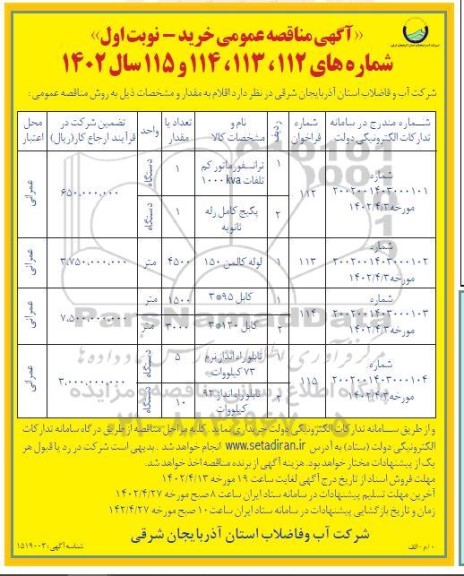 «آگهی مناقصه عمومی خرید – نوبت اول»
شماره های ۱۱۲، ۱۱۳، ۱۱۴ و ۱۱۵ سال ۱۴۰۲
شرکت آب و فاضلاب استان آذربایجان شرقی در نظر دارد اقلام به مقدار و مشخصات ذیل به روش مناقصه عمومی:
شماره مندرج در سامانه تدارکات الکترونیکی دولت | شماره فراخوان | ردیف | نام و مشخصات کالا | تعداد یا مقدار | واحد | تضمین شرکت در فرآیند ارجاع کار (ریال) | محل اعتبار
شماره ۲۰۰۲۰۰۱۴۰۳۰۰۰۱۰۱ مورخه ۱۴۰۲/۴/۳ | ۱۱۲ | ۱ | ترانسفورماتور کم تلفات ۱۰۰۰ kva | ۱ | دستگاه | ۶۵۰,۰۰۰,۰۰۰ | عمرانی
۲ | پکیج کامل رله ثانویه | ۱ | دستگاه
شماره ۲۰۰۲۰۰۱۴۰۳۰۰۰۱۰۲ مورخه ۱۴۰۲/۴/۳ | ۱۱۳ | ۱ | لوله کالمن ۱۵۰ | ۴۵۰۰ | متر | ۳,۷۵۰,۰۰۰,۰۰۰ | عمرانی
شماره ۲۰۰۲۰۰۱۴۰۳۰۰۰۱۰۳ مورخه ۱۴۰۲/۴/۳ | ۱۱۴ | ۱ | کابل ۹۵*۳ | ۱۵۰۰ | متر | ۷,۵۰۰,۰۰۰,۰۰۰ | عمرانی
۲ | کابل ۱۲۰*۳ | ۳۰۰۰ | متر
شماره ۲۰۰۲۰۰۱۴۰۳۰۰۰۱۰۴ مورخه ۱۴۰۲/۴/۳ | ۱۱۵ | ۱ | تابلو راه انداز نرم ۷۳ کیلووات | ۵ | دستگاه | ۳,۰۰۰,۰۰۰,۰۰۰ | عمرانی
۲ | تابلو راه انداز ۹۲ کیلووات | ۱۰ | دستگاه
و از طریق سامانه تدارکات الکترونیکی دولت خریداری نماید. کلیه مراحل مناقصه از طریق درگاه سامانه تدارکات
الکترونیکی دولت (ستاد) به آدرس www.setadiran.ir انجام خواهد شد. بدیهی است شرکت در رد یا قبول هر
یک از پیشنهادات مختار خواهد بود. هزینه آگهی از برنده مناقصه اخذ خواهد شد.
مهلت فروش اسناد از تاریخ درج آگهی لغایت ساعت ۱۹ مورخه ۱۴۰۲/۴/۱۳
آخرین مهلت تسلیم پیشنهادات در سامانه ستاد ایران ساعت ۸ صبح مورخه ۱۴۰۲/۴/۲۷
زمان و تاریخ بازگشایی پیشنهادات در سامانه ستاد ایران ساعت ۱۰ صبح مورخه ۱۴۲/۴/۲۷
شرکت آب وفاضلاب استان آذربایجان شرقی
شناسه آگهی: ۱۵۱۹۰۰۳
۱۰۱م-الف
ParsNamadData